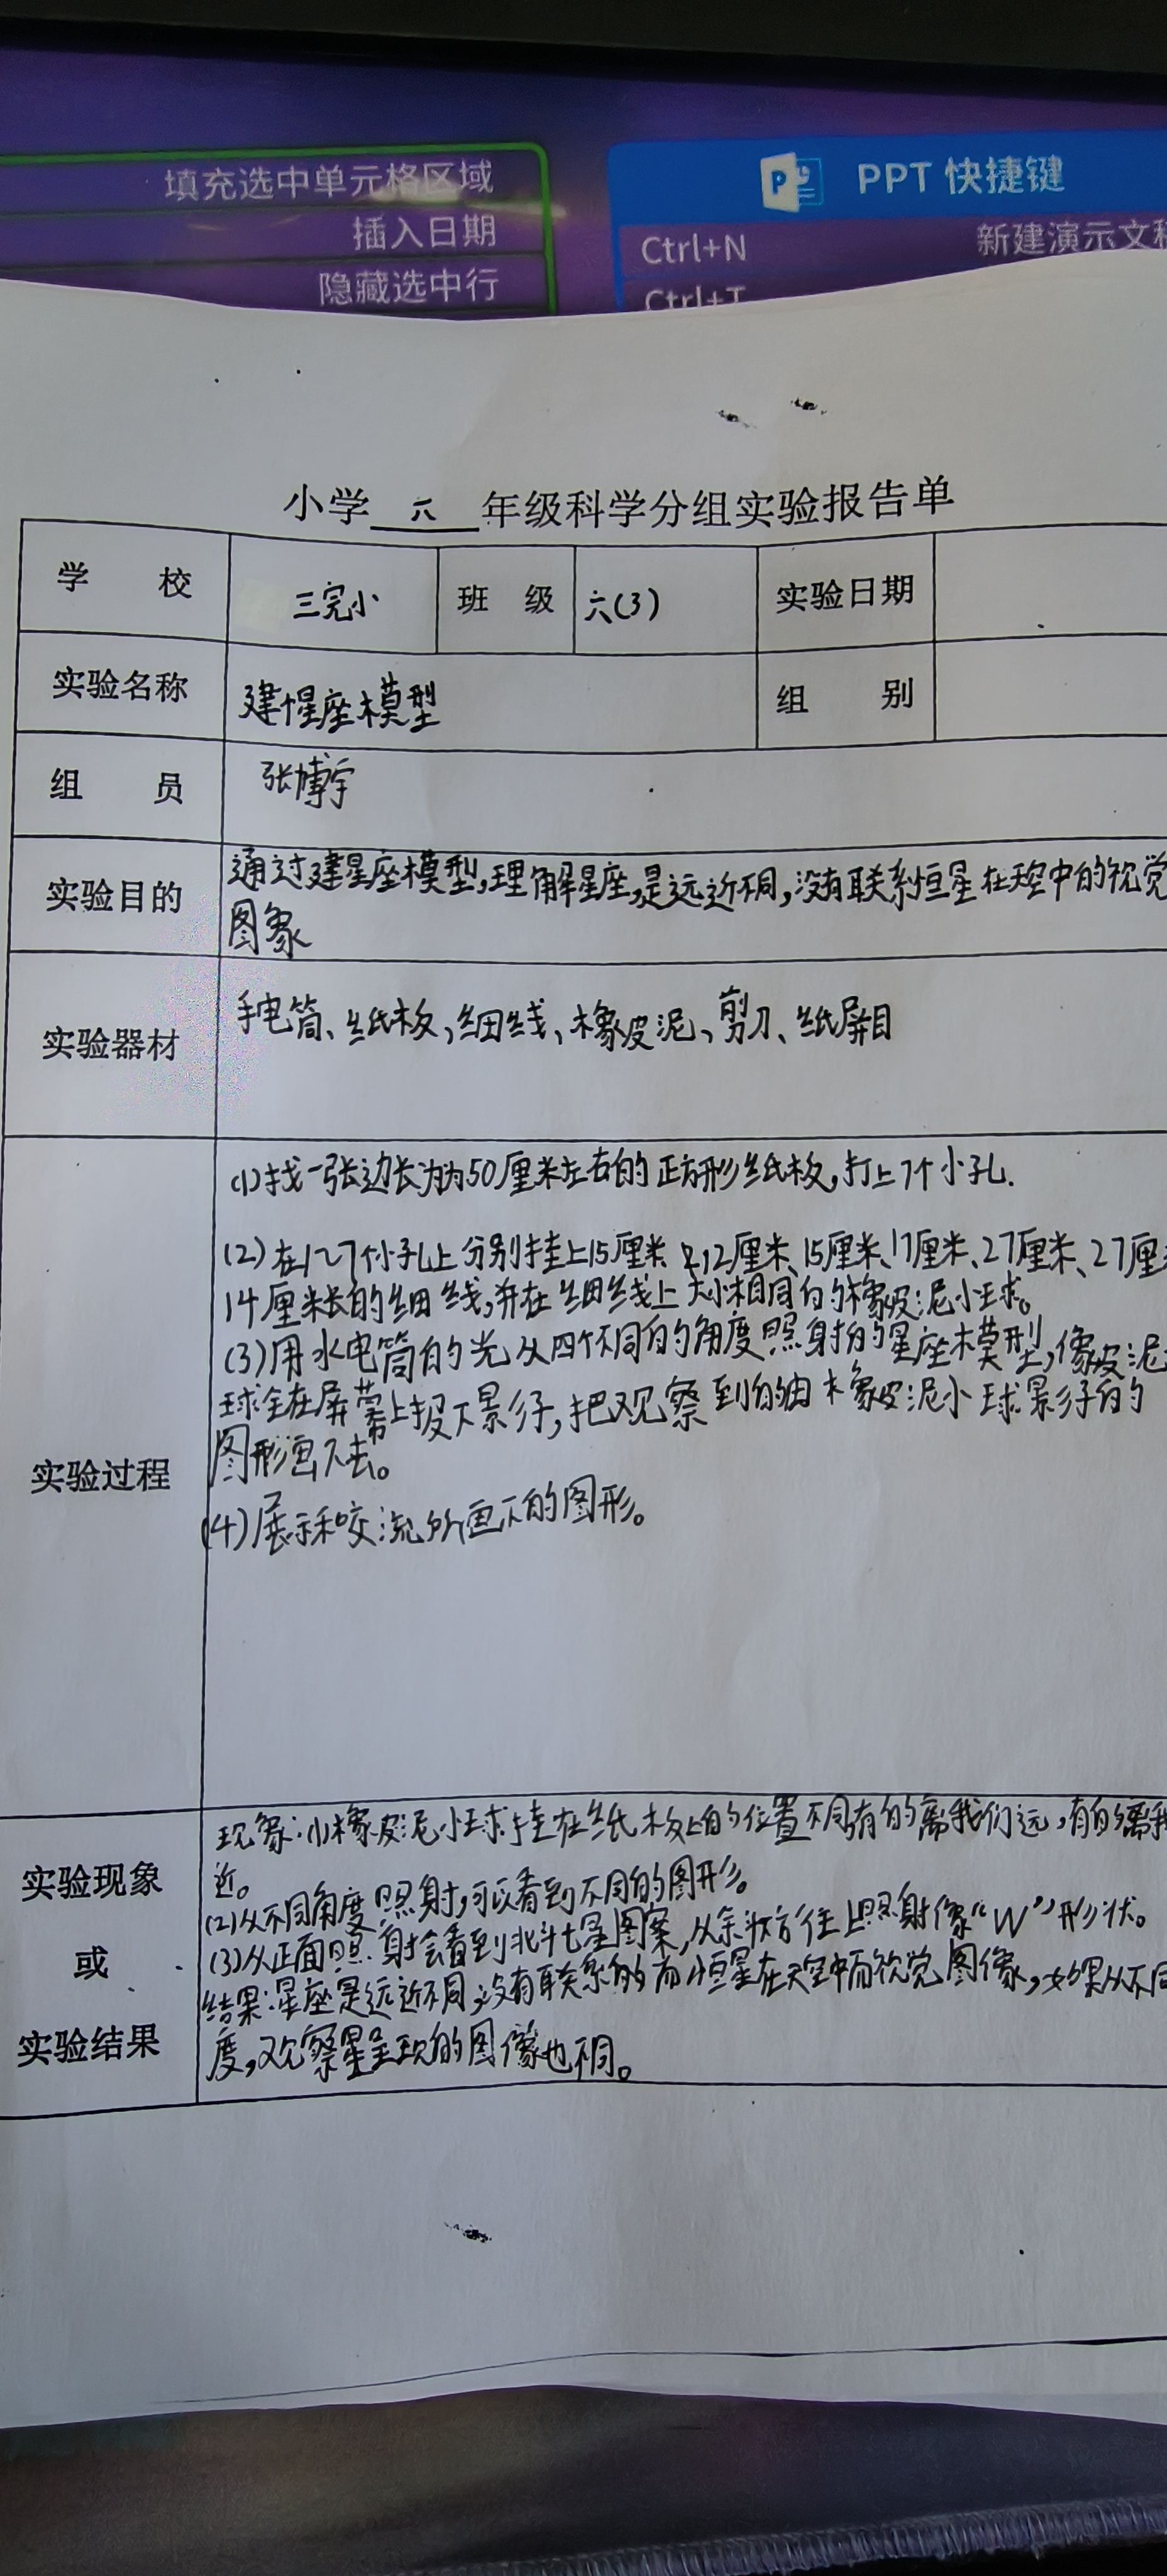 填充选中单元格区域
插入日期
隐藏选中行
PPT 快捷键
Ctrl+N 新建演示文
Ctrl+T
小学 六 年级科学分组实验报告单
学 校 三完小 班 级 六(3) 实验日期
实验名称 建星座模型 组 别
组 员 张博宇
实验目的
通过建星座模型,理解星座,是远近不同,没有联系恒星在天空中的视觉
图象
实验器材
手电筒、纸板、细线、橡皮泥、剪刀、纸屏目
实验过程
(1)找一张边长为为50厘米左右的正方形纸板,打上7个小孔.
(2)在1~7个小孔上分别挂上15厘米、12厘米、15厘米、17厘米、27厘米、27厘
14厘米长的细线,并在细线上大小相同的橡皮泥小球。
(3)用水电筒的光从四个不同的角度照射的星座模型,像皮泥
球全在屏幕上投下景彡子,把观察到的由橡皮泥小球景彡子的
图形画下去。
(4)展示和交流所画下的图形。
实验现象
或
实验结果
现象:(1)橡皮泥小球挂在纸板上的位置不同有的离我们远,有的离我
近。
(2)从不同角度照射,可以看到不同的图形。
(3)从正面照射会看到北斗七星图案,从余状方往上照射像“W”形状。
结果:星座是远近不同,没有联系的而恒星在天空中而视觉图像,如果从不同
度,观察星呈现的图像也不同。